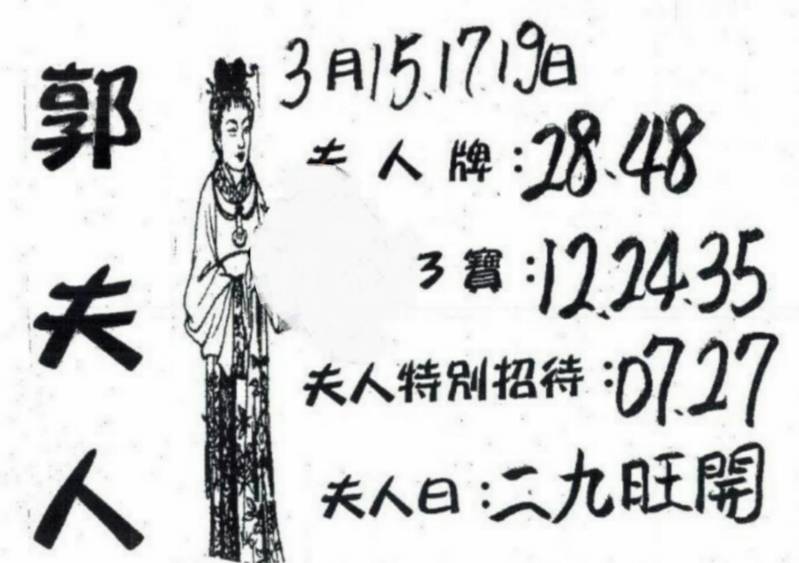 郭夫人
3月15.17.19日
夫人牌:28.48
3寶:12.24.35
夫人特別招待:07.27
夫人曰:二九旺開